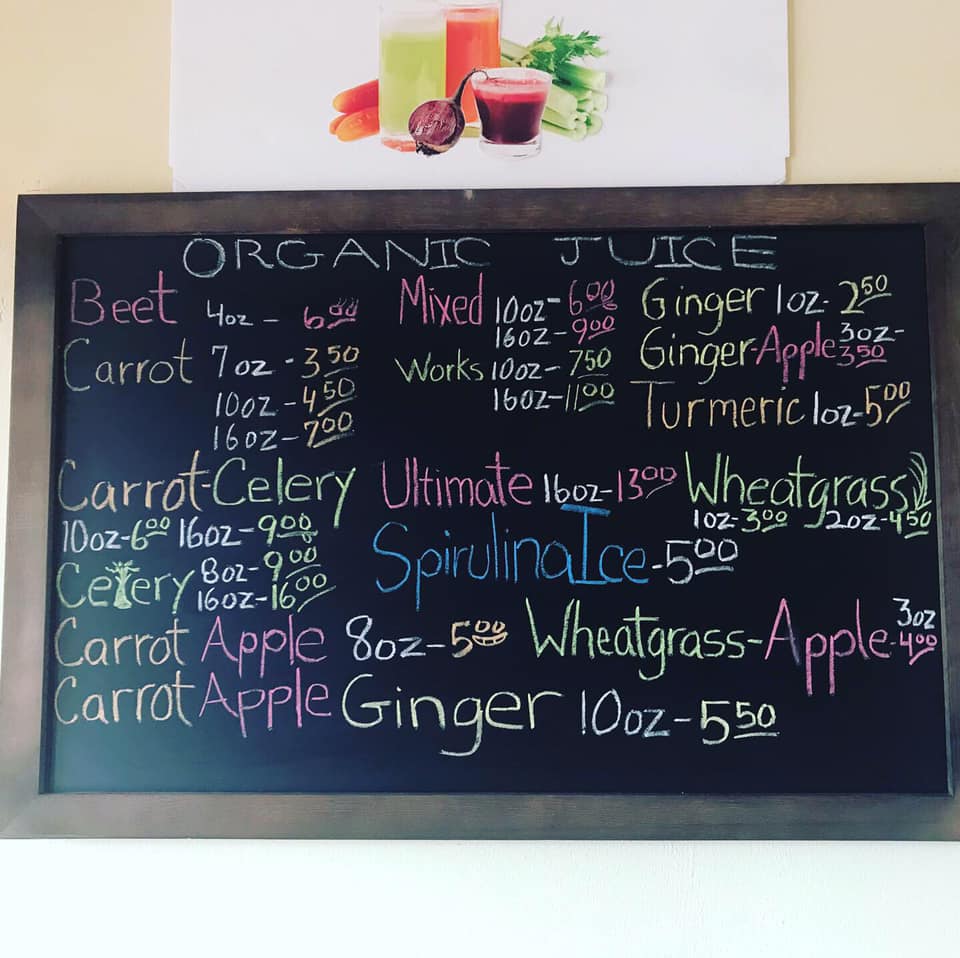 ORGANIC JUICE
Beet 4oz - 6.00
Carrot 7oz - 3.50
10oz - 4.50
16oz - 7.00
Mixed 10oz - 6.00
16oz - 9.00
Works 10oz - 7.50
16oz - 11.00
Ginger 1oz - 2.50
Ginger-Apple 3oz -
3.50
Turmeric 1oz - 5.00
Carrot-Celery
10oz - 6.00 16oz - 9.00
Celery 8oz - 9.00
16oz - 16.00
Ultimate 16oz - 13.00
Wheatgrass
1oz - 3.00 2oz - 4.50
Spirulina Ice - 5.00
Carrot Apple 8oz - 5.00
Wheatgrass-Apple 3oz
- 4.00
Carrot Apple Ginger 10oz - 5.50